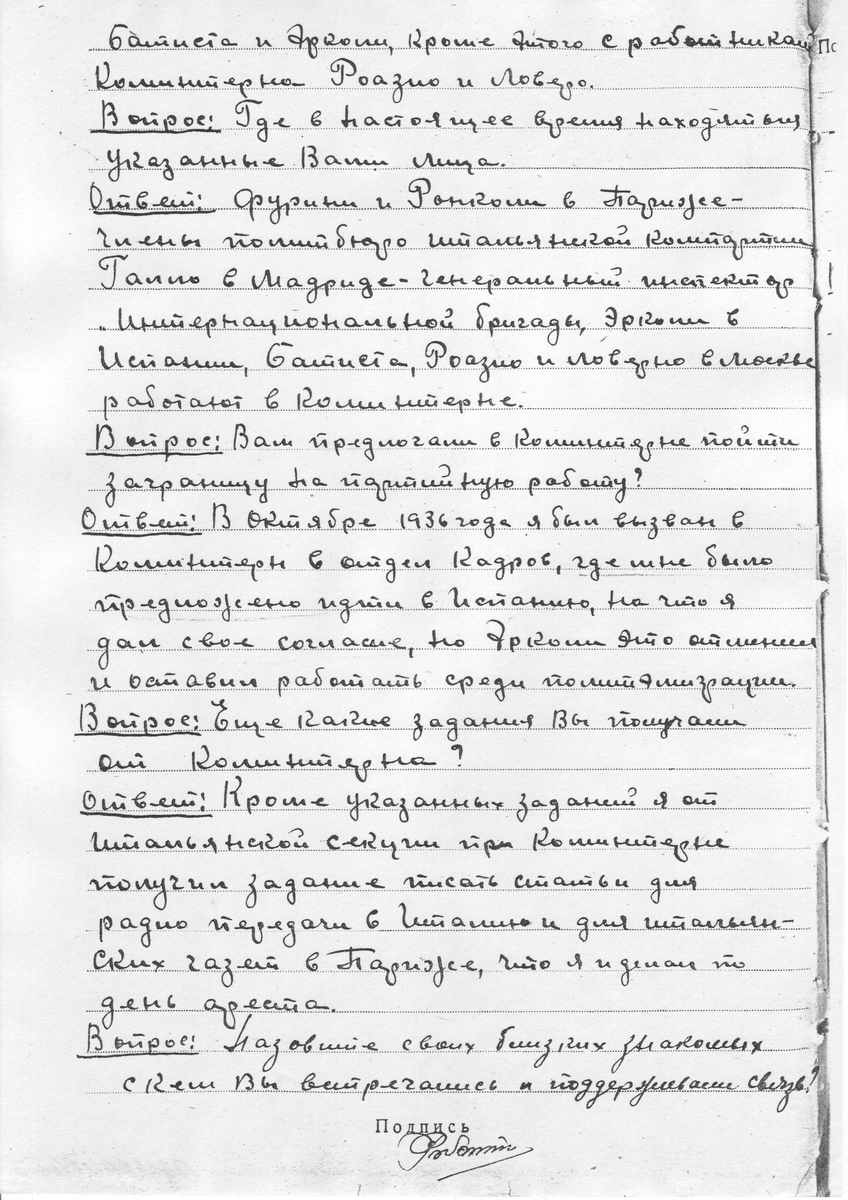 Батиста и Эрколи, кроме этого с работникам
Коминтерна Роазио и Ловеро.
Вопрос: Где в настоящее время находятся
указанные Вами лица.
Ответ: Фурини и Ронколи в Париже-
члены политбюро итальянской компартии,
Галло в Мадриде-Генеральный инспектор
Интернациональной бригады, Эрколи в
Испании, Батиста, Роазио и Ловерно в Москве
работают в Коминтерне.
Вопрос: Вам предлогали в Коминтерне пойти
заграницу на партийную работу?
Ответ: В Октябре 1936 года я был вызван в
Коминтерн в отдел Кадров, где мне было
предложено идти в Испанию, на что я
дал свое согласие, но Эрколи это отменил
и оставил работать среди политэмиграции.
Вопрос: Еще какие задания Вы получали
от Коминтерна?
Ответ: Кроме указанных заданий я от
Итальянской секции при Коминтерне
получил задание писать статьи для
радио передачи в Италию и для итальян-
ских газет в Париже, что я и делал по
день ареста.
Вопрос: Назовите своих близких знакомых
с кем Вы встречались и поддерживали связь?
Подпись